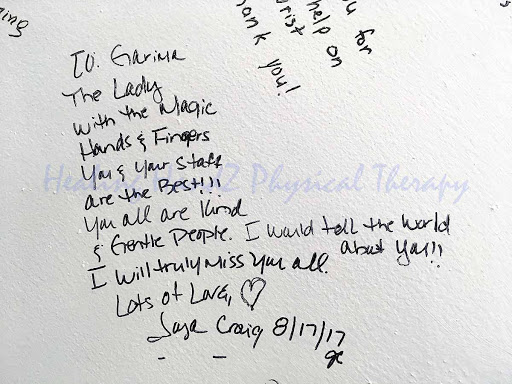 ing
u for
help on
rist
hank you!
TO: Garima
The Lady
with the Magic
Hands & Fingers
You & Your Staff
are the Best!!!
You all are Kind
& Gentle People. I would tell the World
about You!!
I will truly miss you all.
Lots of Love, ♡
Craig 8/17/17
Healing HandZ Physical Therapy